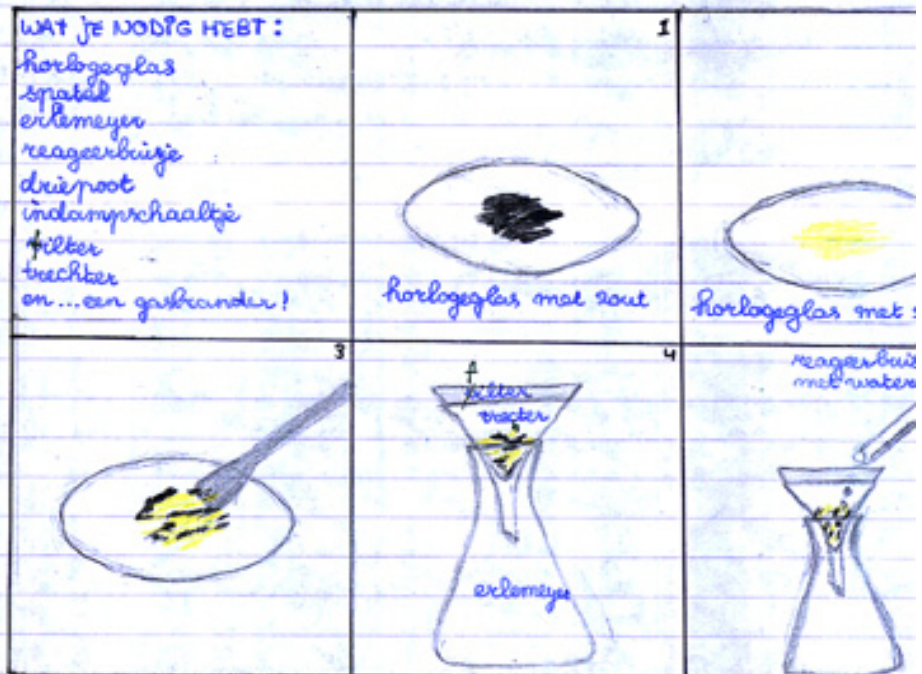 WAT JE NODIG HEBT:
horlogeglas
spatel
erlemeyer
reageerbuisje
driepoot
indampschaaltje
filter
trechter
en...een gasbrander!
1
horlogeglas met zout
horlogeglas met
3
4
filter
trecter
erlemeyer
reageerbuis
met water